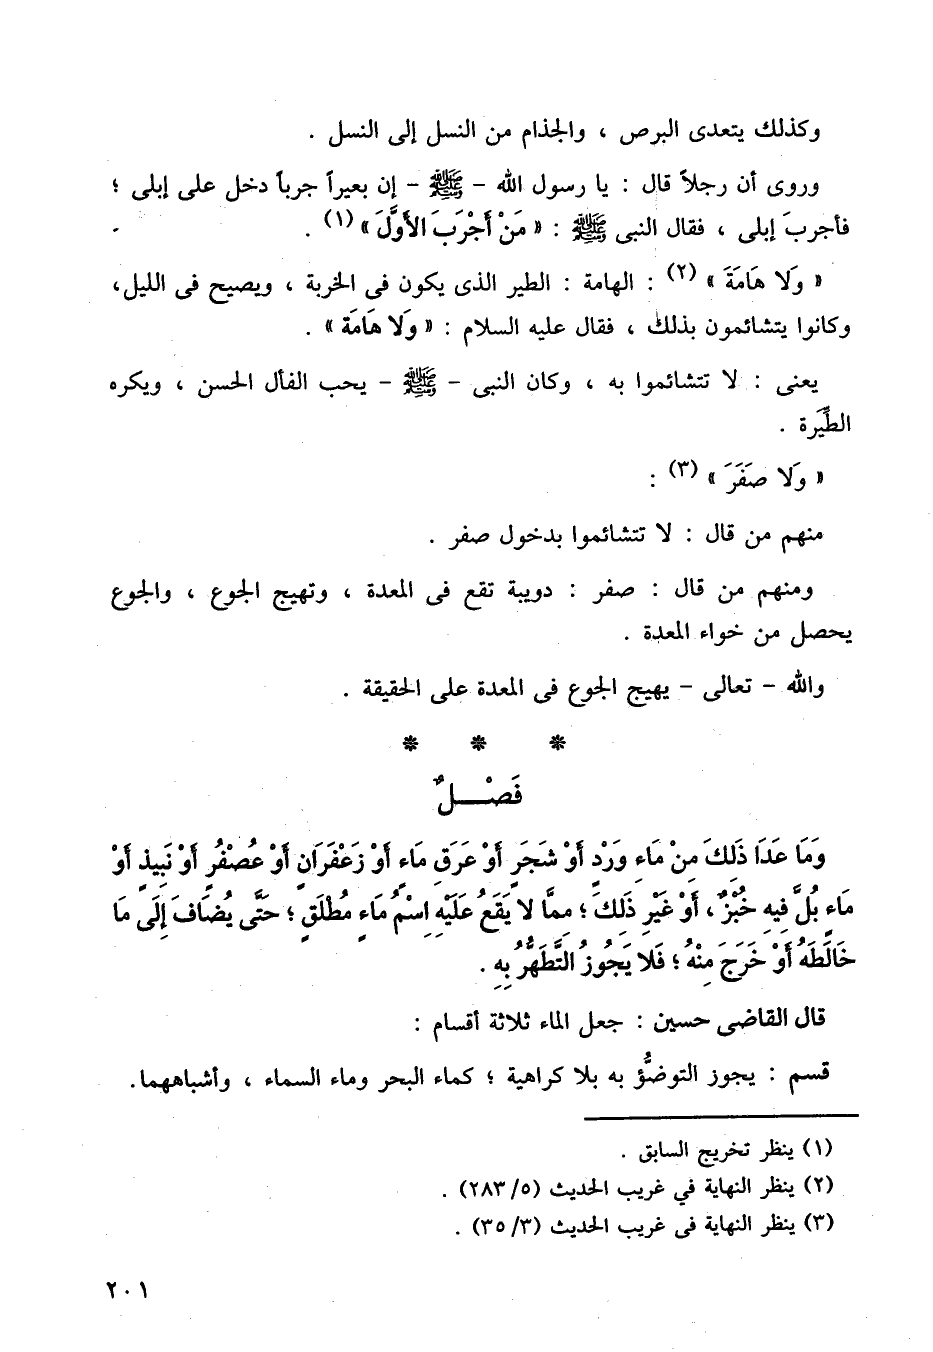 وكذلك يتعدى البرص ، والجذام من النسل إلى النسل .
وروى أن رجلاً قال : يا رسول الله - ﷺ - إن بعيراً جرباً دخل على إبلى ؛
فأجربَ إبلى ، فقال النبى ﷺ : « مَنْ أَجْرَبَ الأَوَّلَ » (١) .
« وَلَا هَامَةَ » (٢) : الهامة : الطير الذى يكون فى الخربة ، ويصيح فى الليل،
وكانوا يتشائمون بذلك ، فقال عليه السلام : « وَلا هَامَة » .
يعنى : لا تتشائموا به ، وكان النبى - ﷺ - يحب الفأل الحسن ، ويكره
الطِّيَرة .
« وَلا صَفَرَ » (٣) :
منهم من قال : لا تتشائموا بدخول صفر .
ومنهم من قال : صفر : دويبة تقع فى المعدة ، وتهيج الجوع ، والجوع
يحصل من خواء المعدة .
والله - تعالى - يهيج الجوع فى المعدة على الحقيقة .
* * *
فَصْـــلٌ
وَمَا عَدَا ذَلِكَ مِنْ مَاءِ وَرْدٍ أَوْ شَجَرٍ أَوْ عَرَقِ مَاءٍ أَوْ زَعْفَرَانٍ أَوْ عُصْفُرٍ أَوْ نَبِيذٍ أَوْ
مَاءٍ بُلَّ فِيهِ خُبْزٌ ، أَوْ غَيْرِ ذَلِكَ ؛ مِمَّا لا يَقَعُ عَلَيْهِ اِسْمُ مَاءٍ مُطْلَقٍ ؛ حَتَّى يُضَافَ إِلَى مَا
خَالَطَهُ أَوْ خَرَجَ مِنْهُ ؛ فَلا يَجُوزُ التَّطَهُّرُ بِهِ .
قال القاضى حسين : جعل الماء ثلاثة أقسام :
قسم : يجوز التوضُّؤ به بلا كراهية ؛ كماء البحر وماء السماء ، وأشباههما.
(١) ينظر تخريج السابق .
(٢) ينظر النهاية في غريب الحديث (٢٨٣/٥) .
(٣) ينظر النهاية فى غريب الحديث (٣٥/٣) .
٢٠١